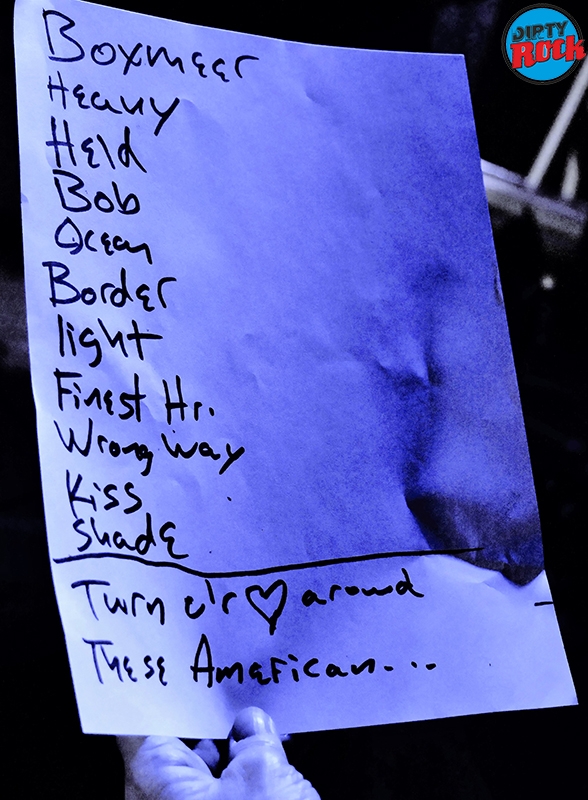 DIRTY
Rock
Boxmeer
Heavy
Held
Bob
Ocean
Border
light
Finest Hr.
Wrong Way
Kiss
Shade
Turn y'r ♡ around
These American...